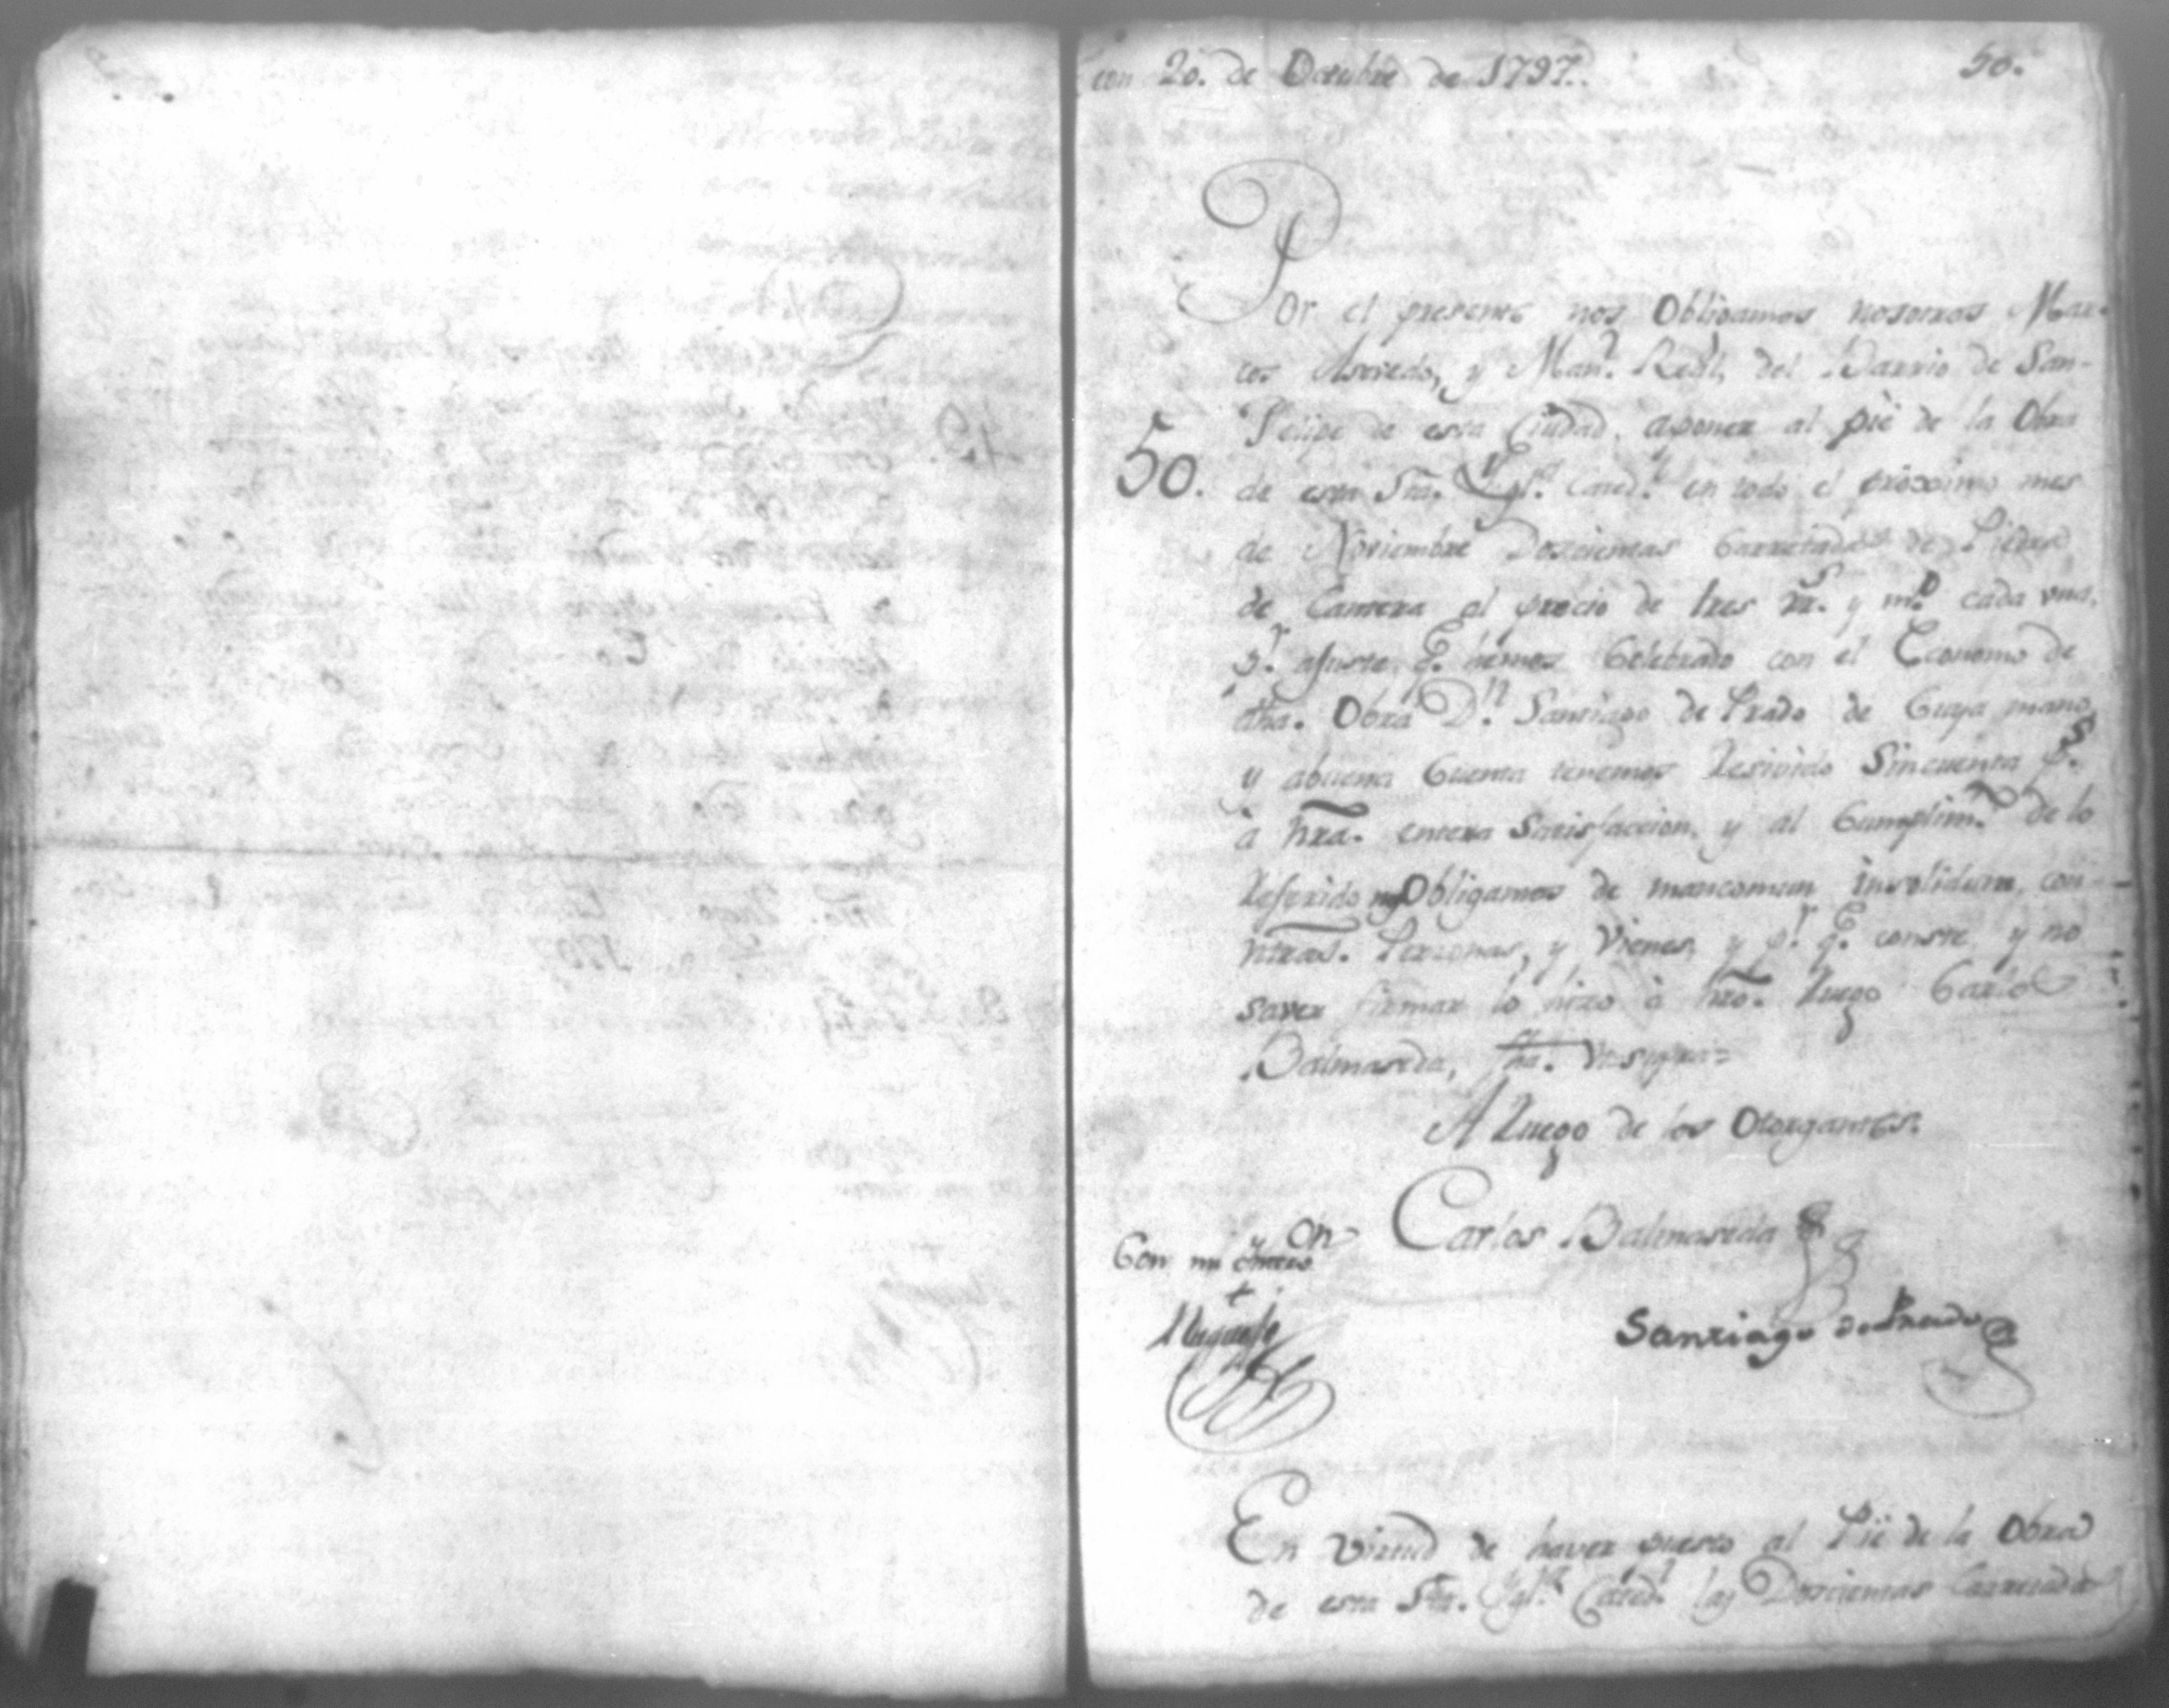 en 20. de Octubre de 1797.. 50.
Por el presente nos Obligamos nosotros Mar-
cos Asevedo, y Man.l del Barrio de San-
Felipe de esta Ciudad, aponer al pie de la Obra
50. de esta Sta. Ygl.a Cated.l en todo el proximo mes
de Noviembre Doscientas Carretadas de Piedra
de Cantera al precio de tres rr.s y m.o cada una,
p.r ajuste q.e hemos Celebrado con el Economo de
dha. Obra D.n Santiago de Prado de Guaja mano,
y abuena Cuenta tenemos Resivido Sincuenta p.s
à ñra. entera Satisfaccion, y al Cumplim.to de lo
Referido nos Obligamos de mancomun insolidum, con
ñtras. Personas, y Vienes, y p.a q.e conste y no
saver firmar lo hizo à ñro. Ruego Carlos
Balmaseda, fha. Vt supra=
A Ruego de los Otorgantes.
Carlos Balmaseda
Con mi
Santiago de Prado
En virtud de haver puesto al Pie de la Obra
de esta Sta. Ygl.a Cated.l las Doscientas Carretadas